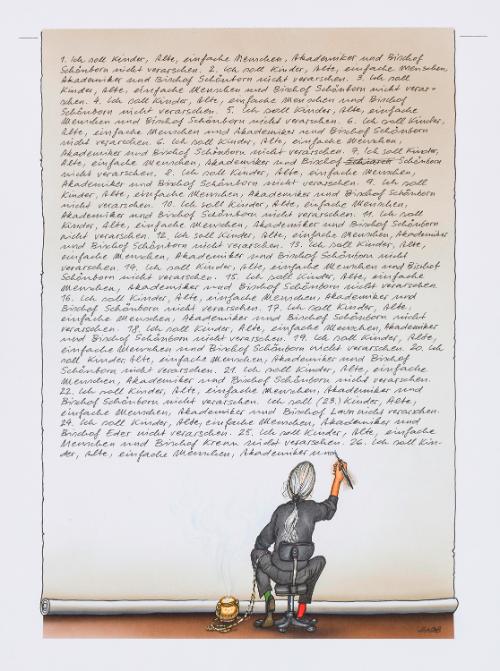 1. Ich soll Kinder, Alte, einfache Menschen, Akademiker und Bischof
Schönborn nicht verarschen. 2. Ich soll Kinder, Alte, einfache Menschen,
Akademiker und Bischof Schönborn nicht verarschen. 3. Ich soll
Kinder, Alte, einfache Menschen und Bischof Schönborn nicht verar-
schen. 4. Ich soll Kinder, Alte, einfache Menschen und Bischof
Schönborn nicht verarschen. 5. Ich soll Kinder, Alte, einfache
Menschen und Bischof Schönborn nicht verarschen. 6. Ich soll Kinder,
Alte, einfache Menschen und Akademiker und Bischof Schönborn
nicht verarschen. 6. Ich soll Kinder, Alte, einfache Menschen,
Akademiker und Bischof Schönborn nicht verarschen. 7. Ich soll Kinder,
Alte, einfache Menschen, Akademiker und Bischof Schönborn
nicht verarschen. 8. Ich soll Kinder, Alte, einfache Menschen,
Akademiker und Bischof Schönborn nicht verarschen. 9. Ich soll
Kinder, Alte, einfache Menschen, Akademiker und Bischof Schönborn
nicht verarschen. 10. Ich soll Kinder, Alte, einfache Menschen,
Akademiker und Bischof Schönborn nicht verarschen. 11. Ich soll
Kinder, Alte, einfache Menschen, Akademiker und Bischof Schönborn
nicht verarschen. 12. Ich soll Kinder, Alte, einfache Menschen, Akademiker
und Bischof Schönborn nicht verarschen. 13. Ich soll Kinder, Alte,
einfache Menschen, Akademiker und Bischof Schönborn nicht
verarschen. 14. Ich soll Kinder, Alte, einfache Menschen und Bischof
Schönborn nicht verarschen. 15. Ich soll Kinder, Alte, einfache
Menschen, Akademiker und Bischof Schönborn nicht verarschen
16. Ich soll Kinder, Alte, einfache Menschen, Akademiker und
Bischof Schönborn nicht verarschen. 17. Ich soll Kinder, Alte,
einfache Menschen, Akademiker und Bischof Schönborn nicht
verarschen. 18. Ich soll Kinder, Alte, einfache Menschen, Akademiker
und Bischof Schönborn nicht verarschen. 19. Ich soll Kinder, Alte,
einfache Menschen, Akademiker und Bischof Schönborn nicht verarschen. 20. Ich
soll Kinder, Alte, einfache Menschen, Akademiker und Bischof
Schönborn nicht verarschen. 21. Ich soll Kinder, Alte, einfache
Menschen, Akademiker und Bischof Schönborn nicht verarschen.
22. Ich soll Kinder, Alte, einfache Menschen, Akademiker und
Bischof Schönborn nicht verarschen. Ich soll (23.) Kinder, Alte,
einfache Menschen, Akademiker und Bischof Laun nicht verarschen.
24. Ich soll Kinder, Alte, einfache Menschen, Akademiker und
Bischof Eder nicht verarschen. 25. Ich soll Kinder, Alte, einfache
Menschen und Bischof Krenn nicht verarschen. 26. Ich soll Kin-
der, Alte, einfache Menschen, Akademiker und